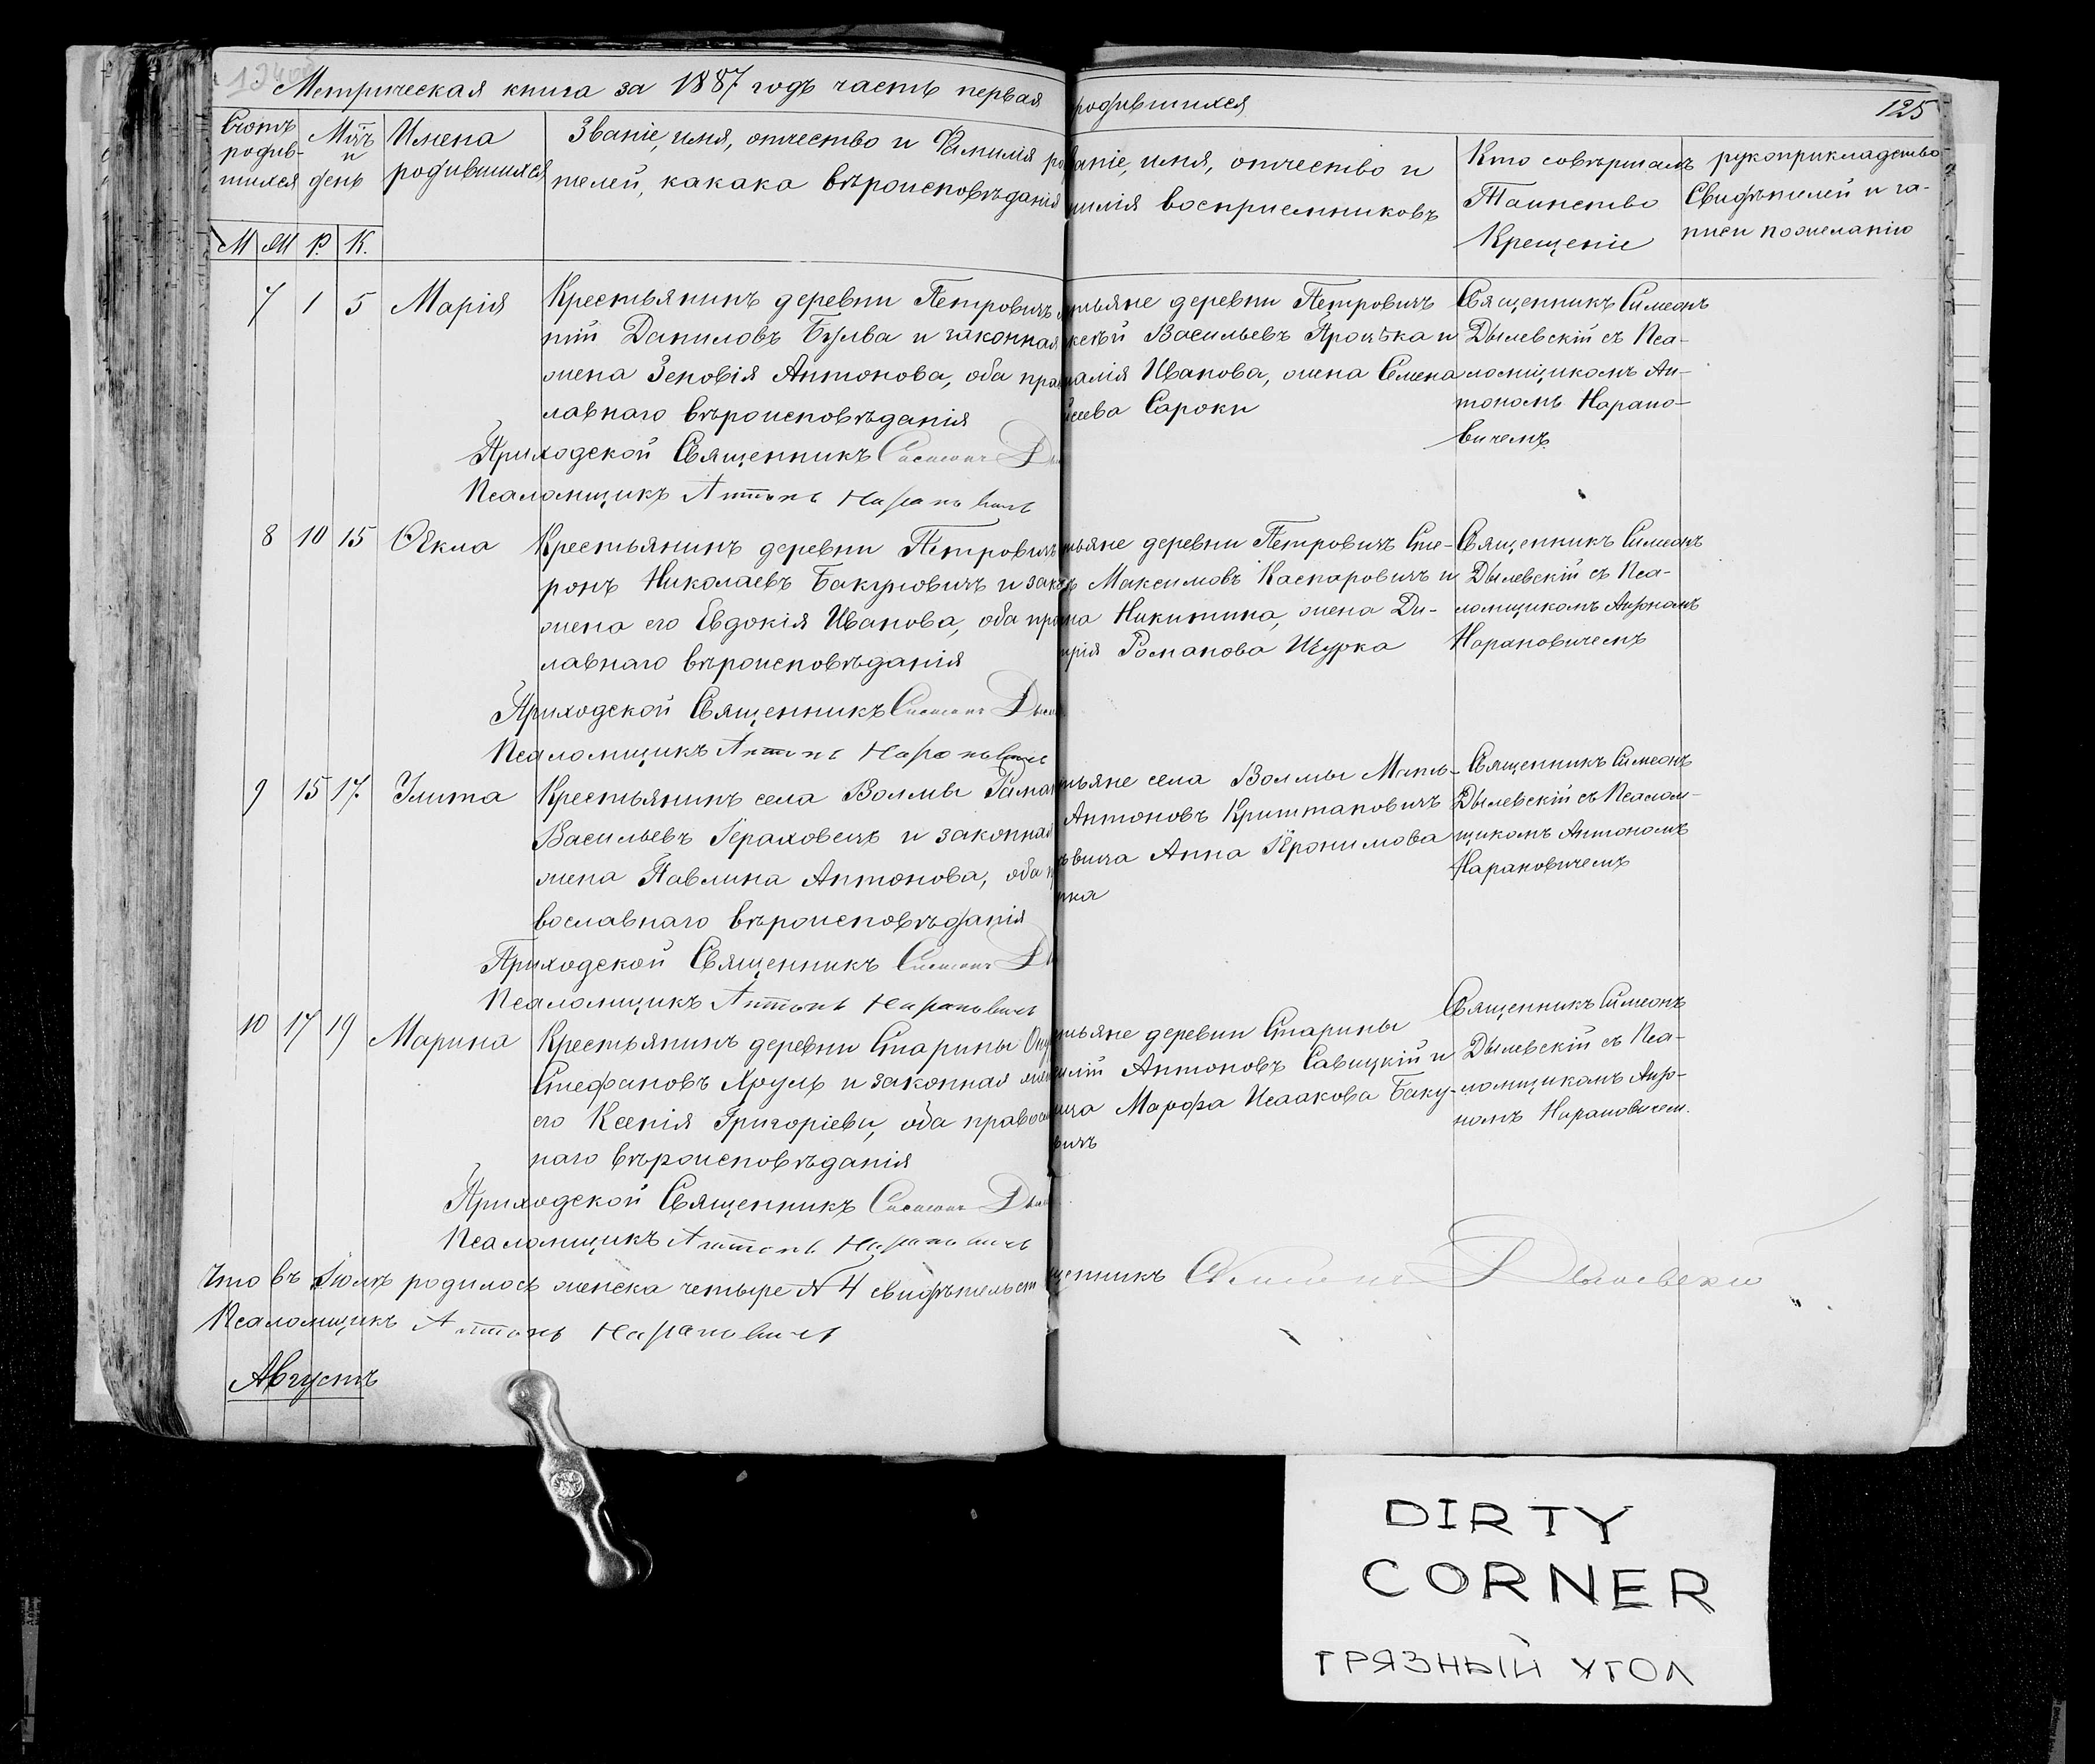 Метрическая книга за 1887 годъ часть первая
родившихся
125
Счотъ родив-шихся
Мѣць и день
Имена родившихся
Званіе, имя, отчество и Фамилія ро
телей, какака вѣроисповѣданія
ваніе, имя, отчество и
милія восприемниковъ
Кто совѣршалъ
Таинство
Крещеніе
рукоприкладство
Свидѣтелей и за-
писи пожеланію
М М Р. К.
7 1 5 Марія
Крестьянинъ деревни Петровичъ
ній Даниловъ Булва и законная
жена Зеновія Антонова, оба пра
лавнаго вѣроисповѣданія
Приходской Священникъ Симеонъ
Псаломщикъ Антонъ Нарановичъ
тьяне деревни Петровичъ
ксѣй Васильевъ Процѣка и
талія Иванова, жена Семена
сеева Сароки
Священникъ Симеонъ
Дылевскій съ Пса-
ломщикомъ Ан-
тономъ Нарано-
вичемъ.
8 10 15 Ѳекла
Крестьянинъ деревни Петровичъ
ронъ Николаевъ Бакуновичъ и зак
жена его Евдокія Иванова, оба пр
лавнаго вѣроисповѣданія
Приходской Священникъ Симеонъ Дыл
Псаломщикъ Антонъ Нарановичъ
тьяне деревни Петровичъ Сте-
Максимовъ Каспаровичъ и
на Никитина, жена Ди-
трія Романова Шурка
Священникъ Симеонъ
Дылевскій съ Пса-
ломщикомъ Антономъ
Нарановичемъ
9 15 17. Улита
Крестьянинъ села Волмы Рома
Васильевъ Гераховецъ и законная
жена Павлина Антонова, оба п
вославнаго вѣроисповѣданія
Приходской Священникъ Симеонъ
Псаломщикъ Антонъ Нарановичъ
тьяне села Волмы
Антоновъ Криштаповичъ
вица Анна Іеронимова
нка
Священникъ Симеонъ
Дылевскій съ Псалом-
щикомъ Антономъ
Нарановичемъ
10 17 19 Марина
Крестьянинъ деревни Старины
Стефановъ Хруль и законная жен
его Ксенія Григоріева, оба правос
наго вѣроисповѣданія
Приходской Священникъ Симеонъ Дыл
Псаломщикъ Антонъ Нарановичъ
тьяне деревни Старины
силій Антоновъ Савицкій и
ица Марфа Исаакова Баку-
вичъ
Священникъ Симеонъ
Дылевскій съ Пса-
ломщикомъ Анто-
номъ Нарановичем.
Что въ Іюлѣ родилось женска четыре № 4 свидѣтельст
щенникъ Симеонъ Дылевскій
Псаломщикъ Антонъ Нарановичъ
Августъ
DIRTY
CORNER
ГРЯЗНЫЙ УГОЛ